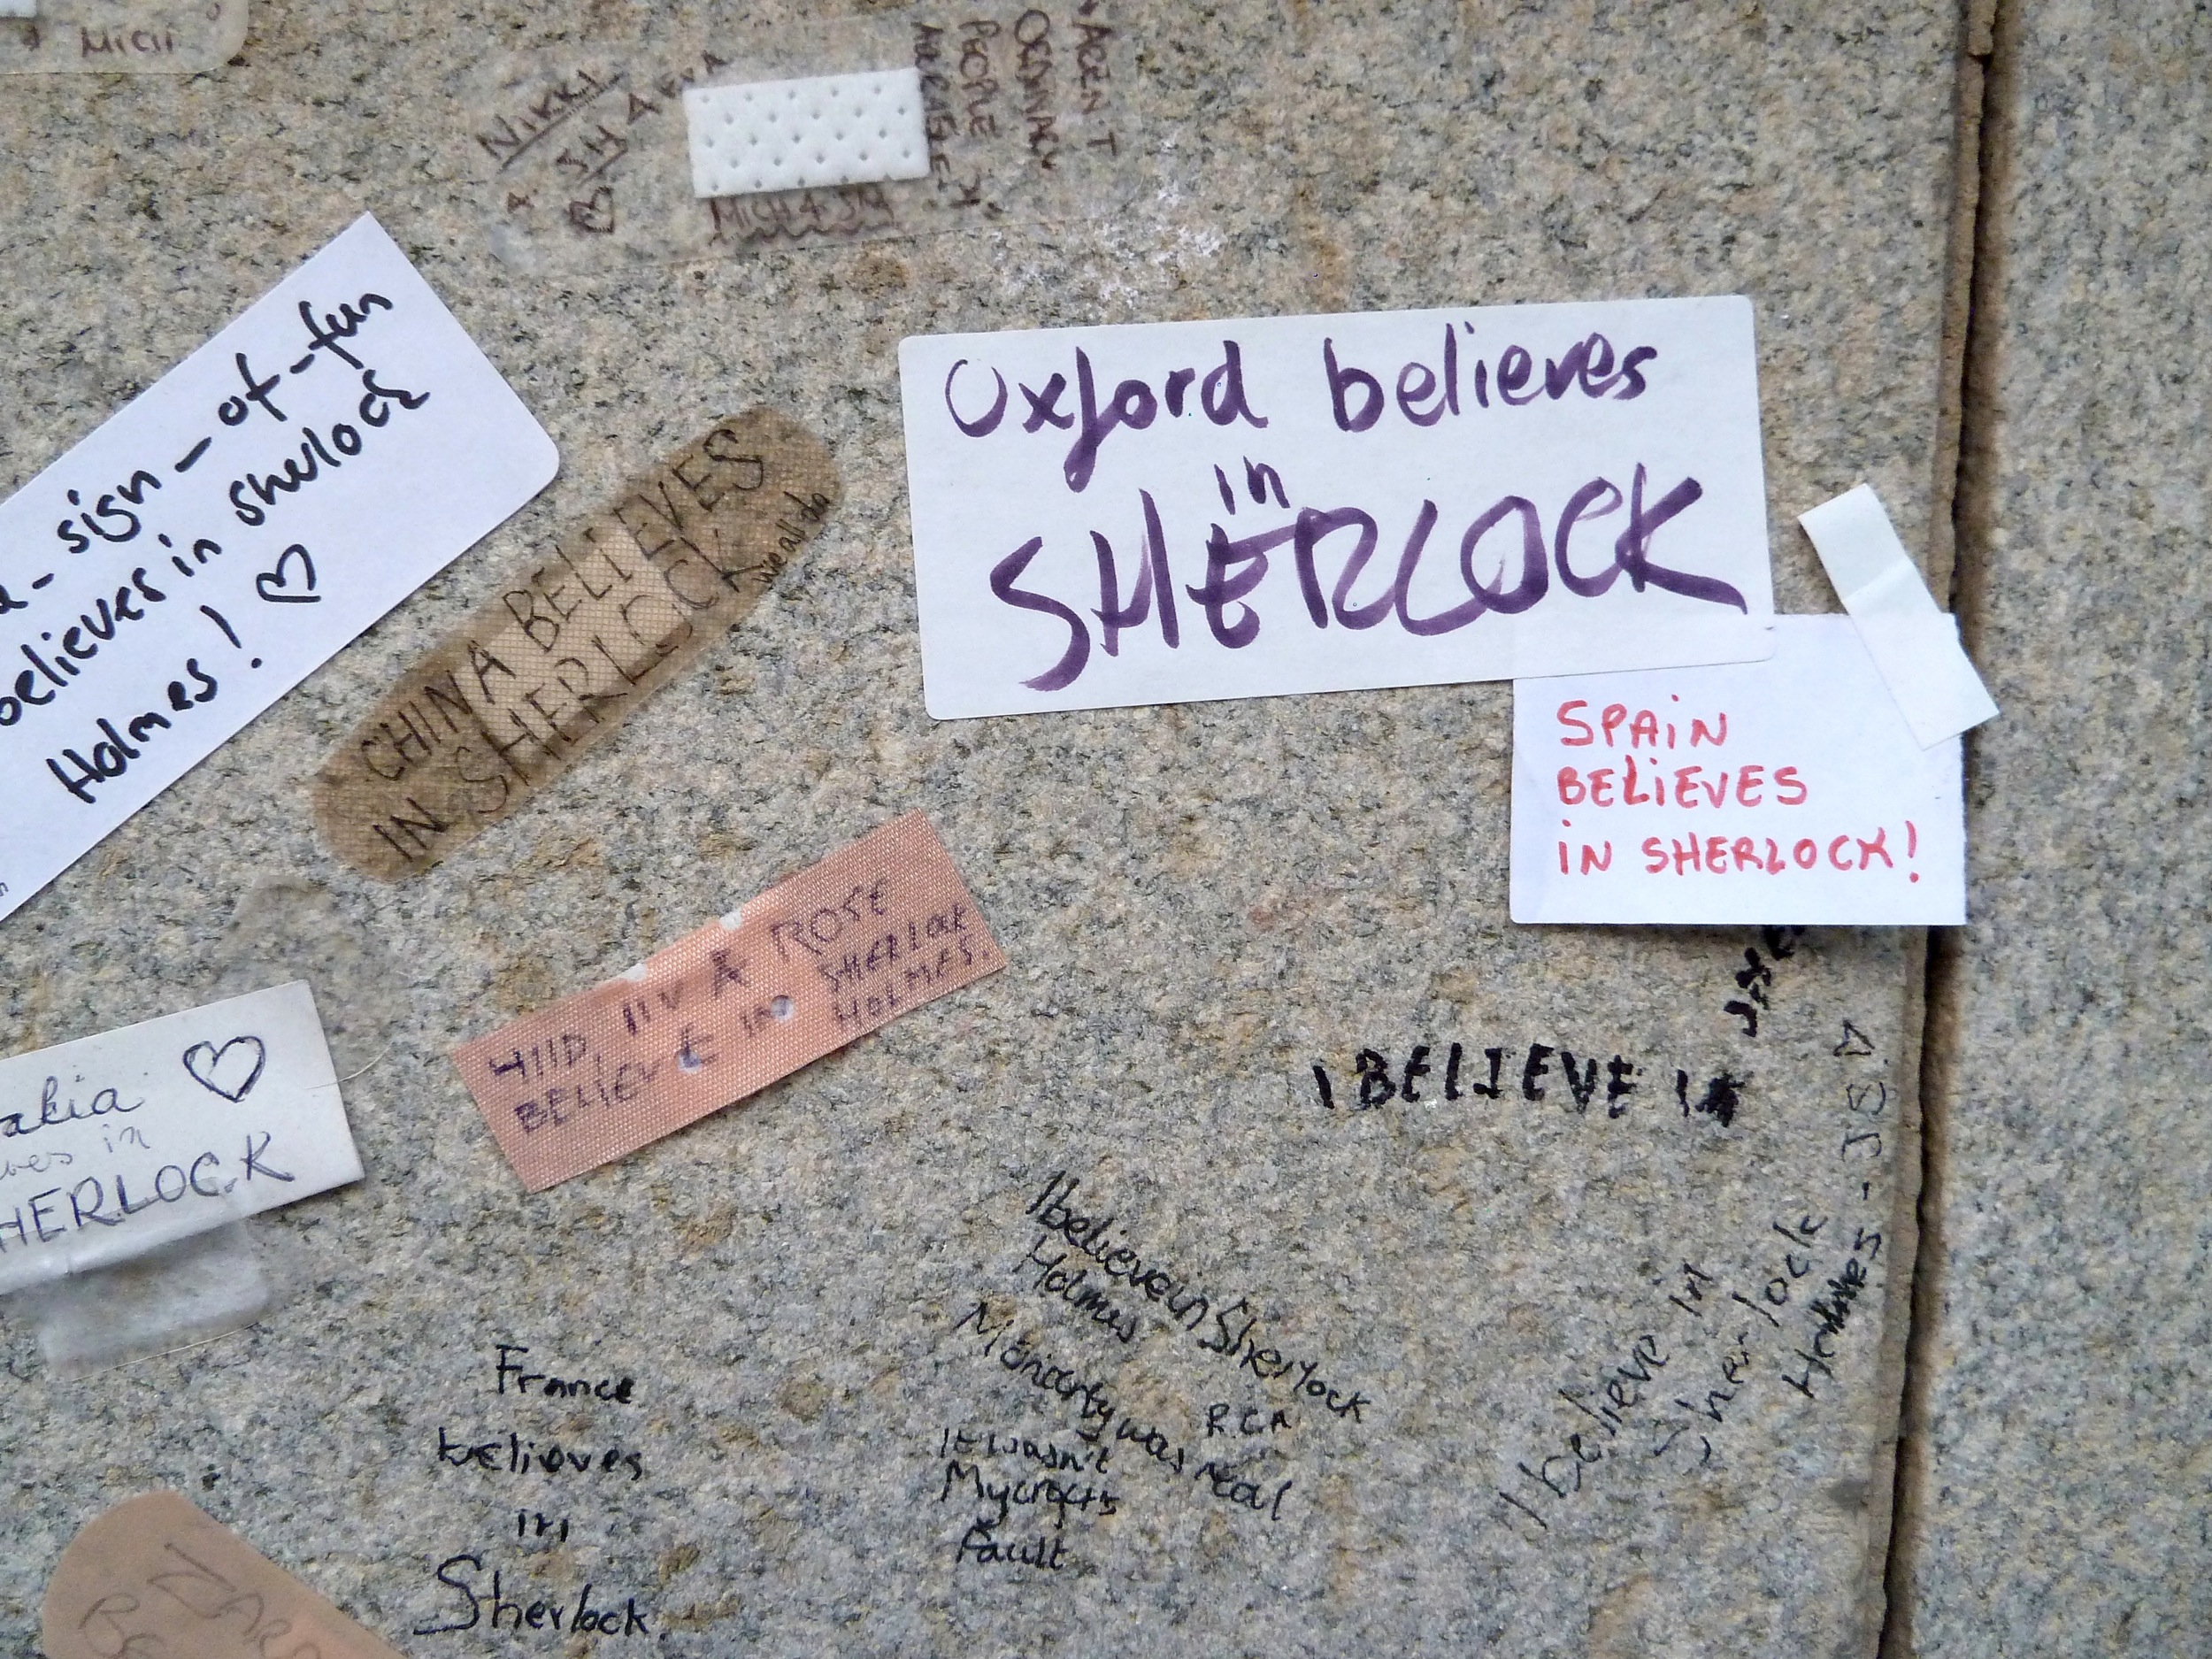 Michi
NIKKI
SH
AREN'T
ORDINARY
PEOPLE
ADORABLE
a-sign-of-fun
believes in sherlock
Holmes! ♡
CHINA BELIEVES
IN SHERLOCK
we all do
Oxford believes
in
SHERLOCK
SPAIN
BELIEVES
IN SHERLOCK!
A ROSE
BELIEVE IN SHERLOCK
HOLMES.
akia ♡
ves in
HERLOCK
I BELIEVE IN
I believe in Sherlock
Holmes
Moriarty was real
R.C.A
It wasn't
Mycroft's
Fault
I believe in
Sherlock
Holmes - JS ♡
France
believes
in
Sherlock.